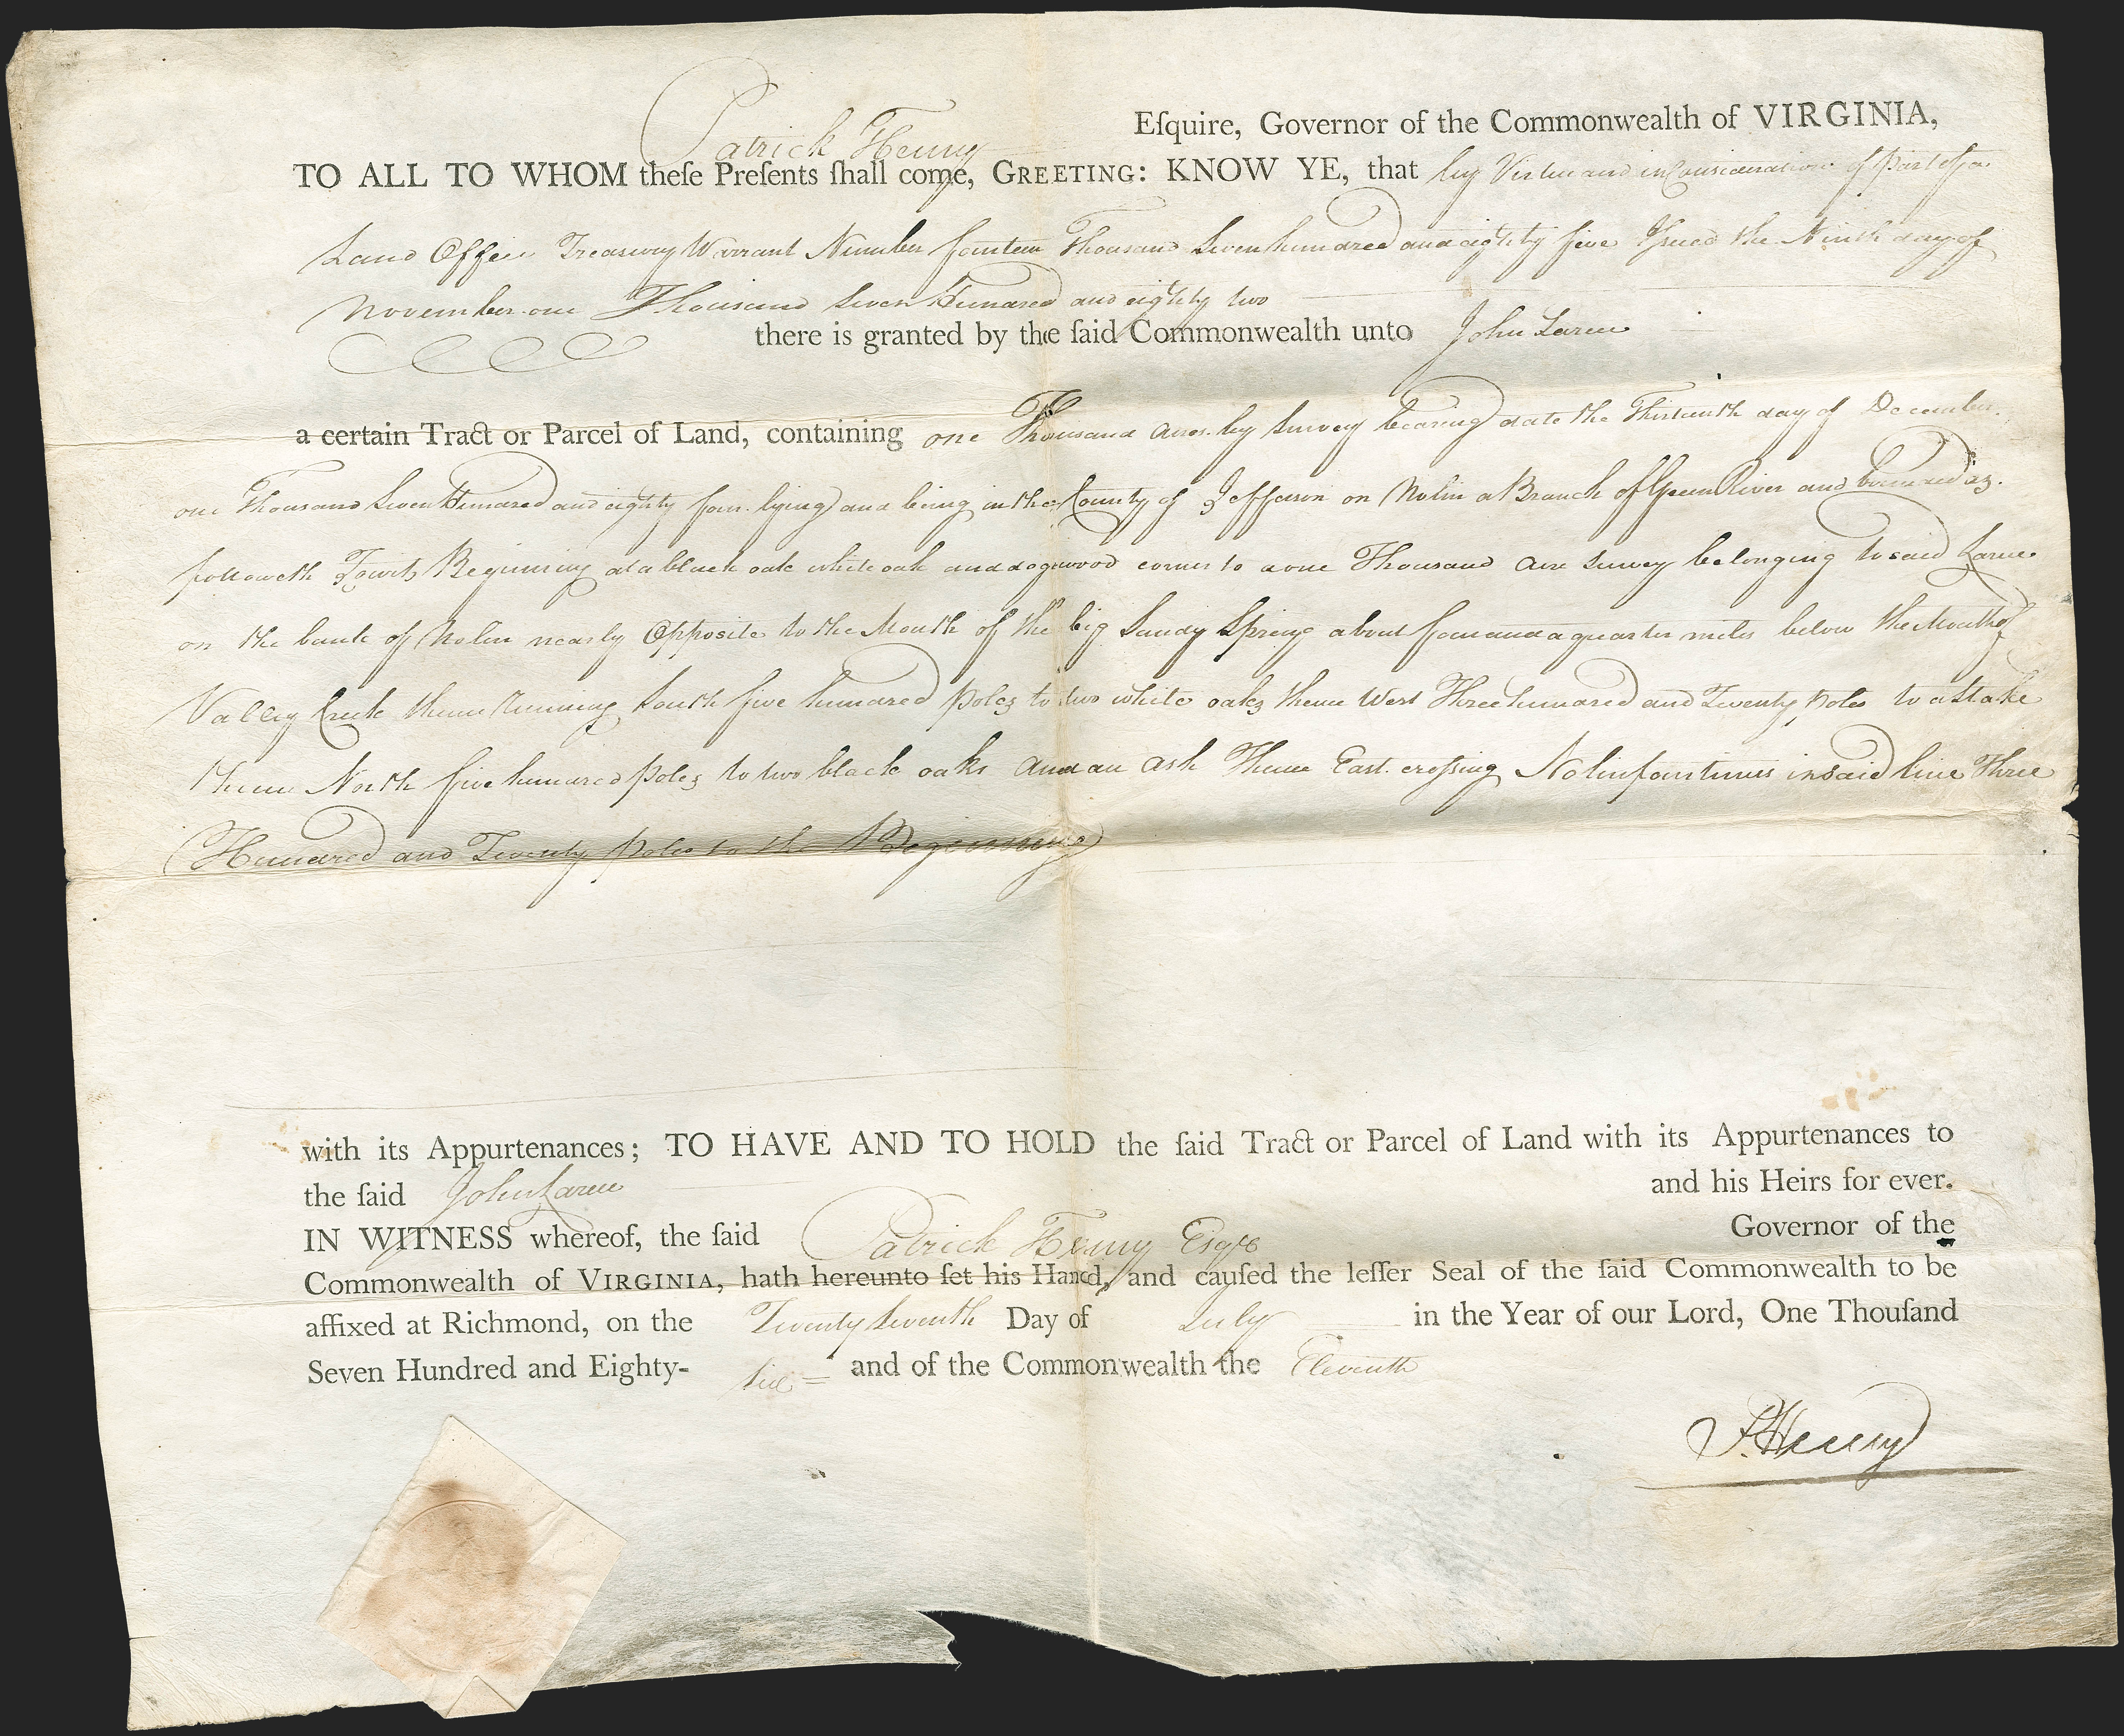 Patrick Henry Eſquire, Governor of the Commonwealth of VIRGINIA,
TO ALL TO WHOM theſe Preſents ſhall come, GREETING: KNOW YE, that by Virtue and in Consideration of part of a
Land Office Treasury Warrant Number fourteen Thousand Seven hundred and eighty five Iſsued the Ninth day of
November one Thousand Seven Hundred and eighty two
there is granted by the ſaid Commonwealth unto John Larue
a certain Tract or Parcel of Land, containing one Thousand Acres by Survey bearing date the Thirteenth day of December
one Thousand Seven Hundred and eighty four lying and being in the County of Jefferson on Nolin a Branch of Green River and bounded as
followeth Towit, Beginning at a black oak white oak and dogwood corner to a one Thousand Acre Survey belonging to said Larue
on the bank of Nolin nearly Opposite to the Mouth of the big Sandy Spring about four and a quarter miles below the Mouth of
Valley Creek thence Running South five hundred poles to two white oaks thence West Three hundred and Twenty poles to a Stake
thence North five hundred poles to two black oaks and an ash Thence East croſsing Nolin four times in said line Three
Hundred and Twenty poles to the Beginning
with its Appurtenances; TO HAVE AND TO HOLD the ſaid Tract or Parcel of Land with its Appurtenances to
the ſaid John Larue and his Heirs for ever.
IN WITNESS whereof, the ſaid Patrick Henry Esqre Governor of the
Commonwealth of VIRGINIA, hath hereunto ſet his Hand, and cauſed the leſſer Seal of the ſaid Commonwealth to be
affixed at Richmond, on the Twenty Seventh Day of July in the Year of our Lord, One Thouſand
Seven Hundred and Eighty- Six = and of the Commonwealth the Eleventh
P. Henry